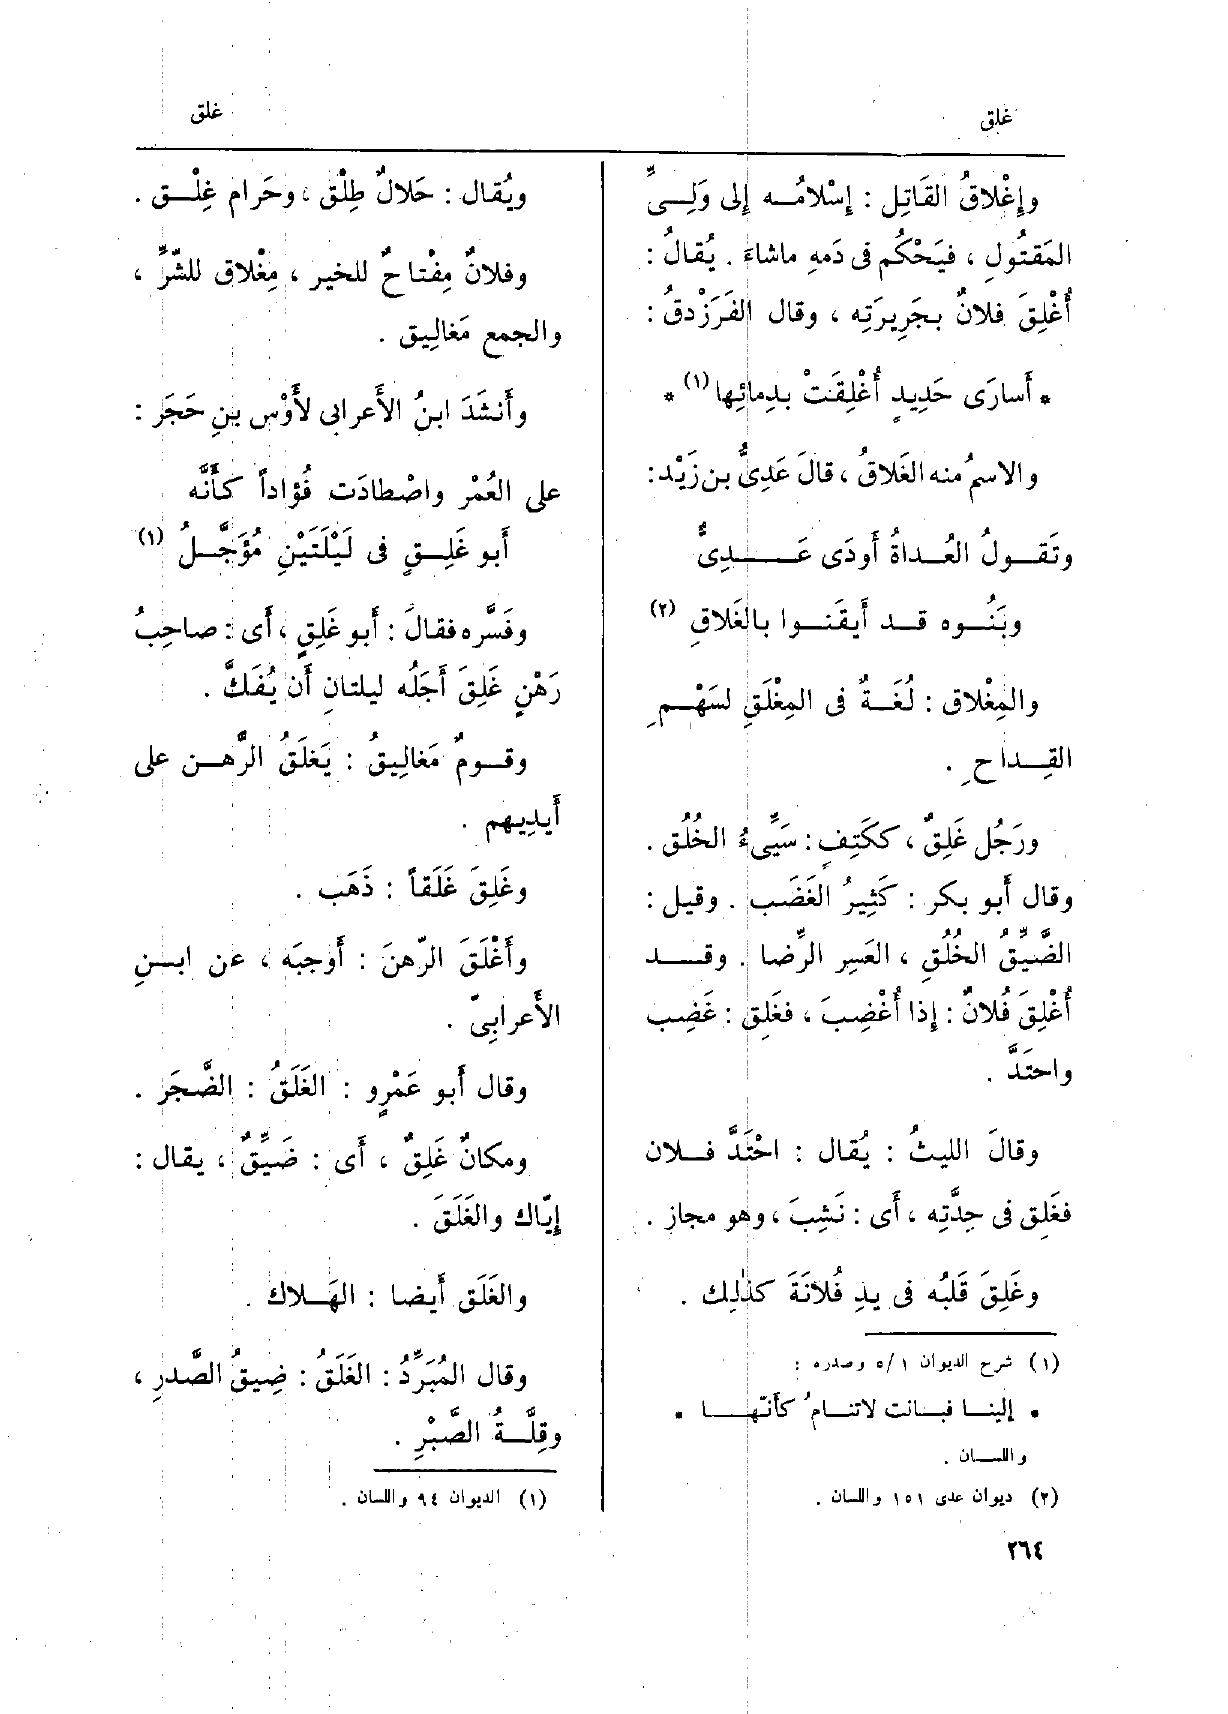 غلق
غلق
وإِغْلاقُ القَاتِل : إسْلامُــه إلى وَلِــىِّ
المَقتُولِ ، فيَحْكُم فى دَمهِ ماشاءَ . يُقالُ :
أُغْلِقَ فلانٌ بجَرِيرَتِه ، وقال الفَرَزْدقُ :
* أَسارَى حَديدٍ أُغْلِقَتْ بدِمائِها (١) *
والاسمُ منه الغَلاقُ ، قالَ عَدِىُّ بن زَيْد :
وتَقــولُ العُــداةُ أَودَى عَــــدِىٌّ
وبَنُــوه قــد أَيقَنــوا بالغَلاقِ (٢)
والمِغْلاق : لُغَــةٌ فى المِغْلَقِ لسَهْــمِ
القِــداحِ .
ورَجُل غَلِقٌ ، ككَتِفٍ : سَيِّىءُ الخُلُق .
وقال أَبو بكر : كَثِيرُ الغَضَب . وقيل :
الضَّيِّقُ الخُلُقِ ، العَسِر الرِّضا . وقــد
أُغْلِقَ فُلانٌ : إذا أُغْضِبَ ، فغَلِق : غَضِب
واحتَدَّ .
وقالَ الليثُ : يُقال : احْتَدَّ فــلان
فغَلِق فى حِدَّتِه ، أَى : نَشِبَ ، وهو مجاز .
وغَلِقَ قَلبُه فى يدِ فُلانَةَ كذٰلِك .
(١) شرح الديوان ١ /٥ وصدره :
* إلينــا فبــاتت لاتنــامُ كأنّهــا *
واللســان .
(٢) ديوان عدى ١٥١ واللسان .
٢٦٤
ويُقال : حَلالٌ طِلْق ، وحَرام غِلْــق .
وفلانٌ مِفْتاحٌ للخير ، مِغْلاق للشَّرِّ ،
والجمع مَغالِيق .
وأَنشَدَ ابنُ الأَعرابى لأَوْس بنِ حَجَر :
على العُمْر واصْطادَت فُؤاداً كأَنَّه
أَبو غَلِــقٍ فى لَيْلَتَيْنِ مُؤَجَّــلُ (١)
وفَسَّره فقالَ : أَبو غَلِقٍ ، أَى : صاحِبُ
رَهْنٍ غَلِقَ أَجَلُه ليلتانِ أَن يُفَكَّ .
وقــومٌ مَغالِيقُ : يَغلَقُ الرَّهــن على
أَيدِيهم .
وغَلِقَ غَلَقاً : ذَهَب .
وأَغْلَقَ الرّهنَ : أَوجبَه ، عن ابــنِ
الأَعرابِىّ .
وقال أَبو عَمْرٍو : الغَلَقُ : الضَّجَر .
ومكانٌ غَلِقٌ ، أَى : ضَيِّقٌ ، يقال :
إيّاك والغَلَقَ .
والغَلَق أَيضا : الهَــلاك .
وقال المُبَرِّدُ : الغَلَقُ : ضِيقُ الصَّدرِ ،
وقِلَّــةُ الصَّبْرِ .
(١) الديوان ٩٤ واللسان .